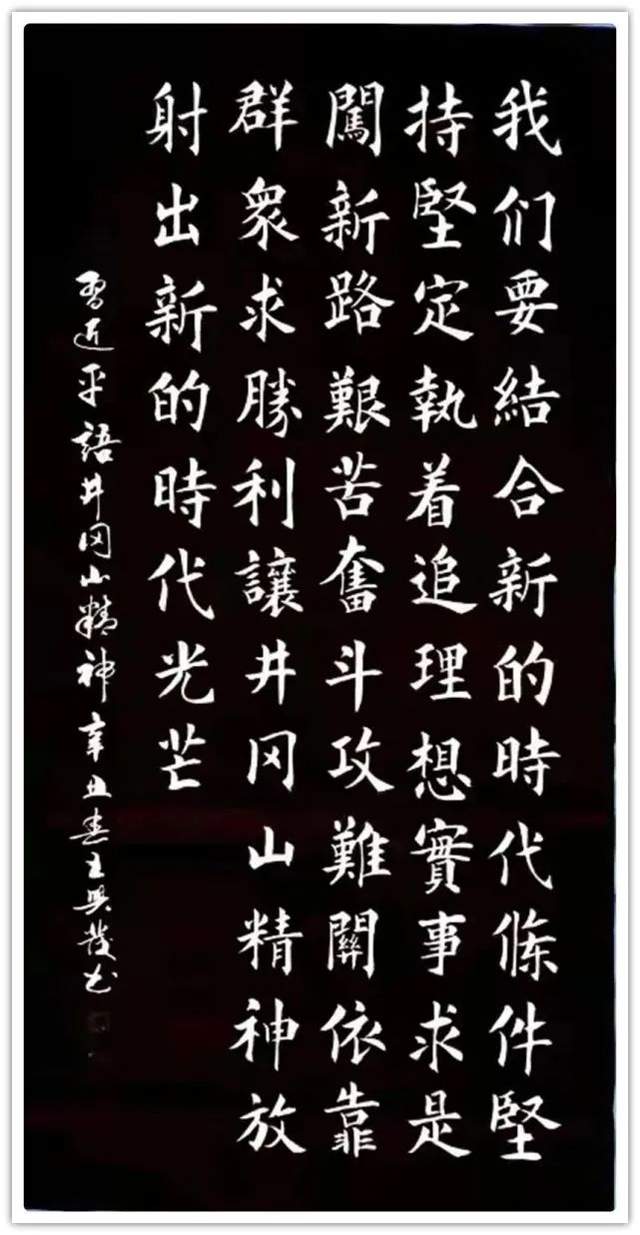 我们要結合新的時代條件堅
持堅定執着追理想實事求是
闖新路艱苦奮斗攻難關依靠
群衆求勝利讓井冈山精神放
射出新的時代光芒
習近平語井冈山精神辛丑春王興發书